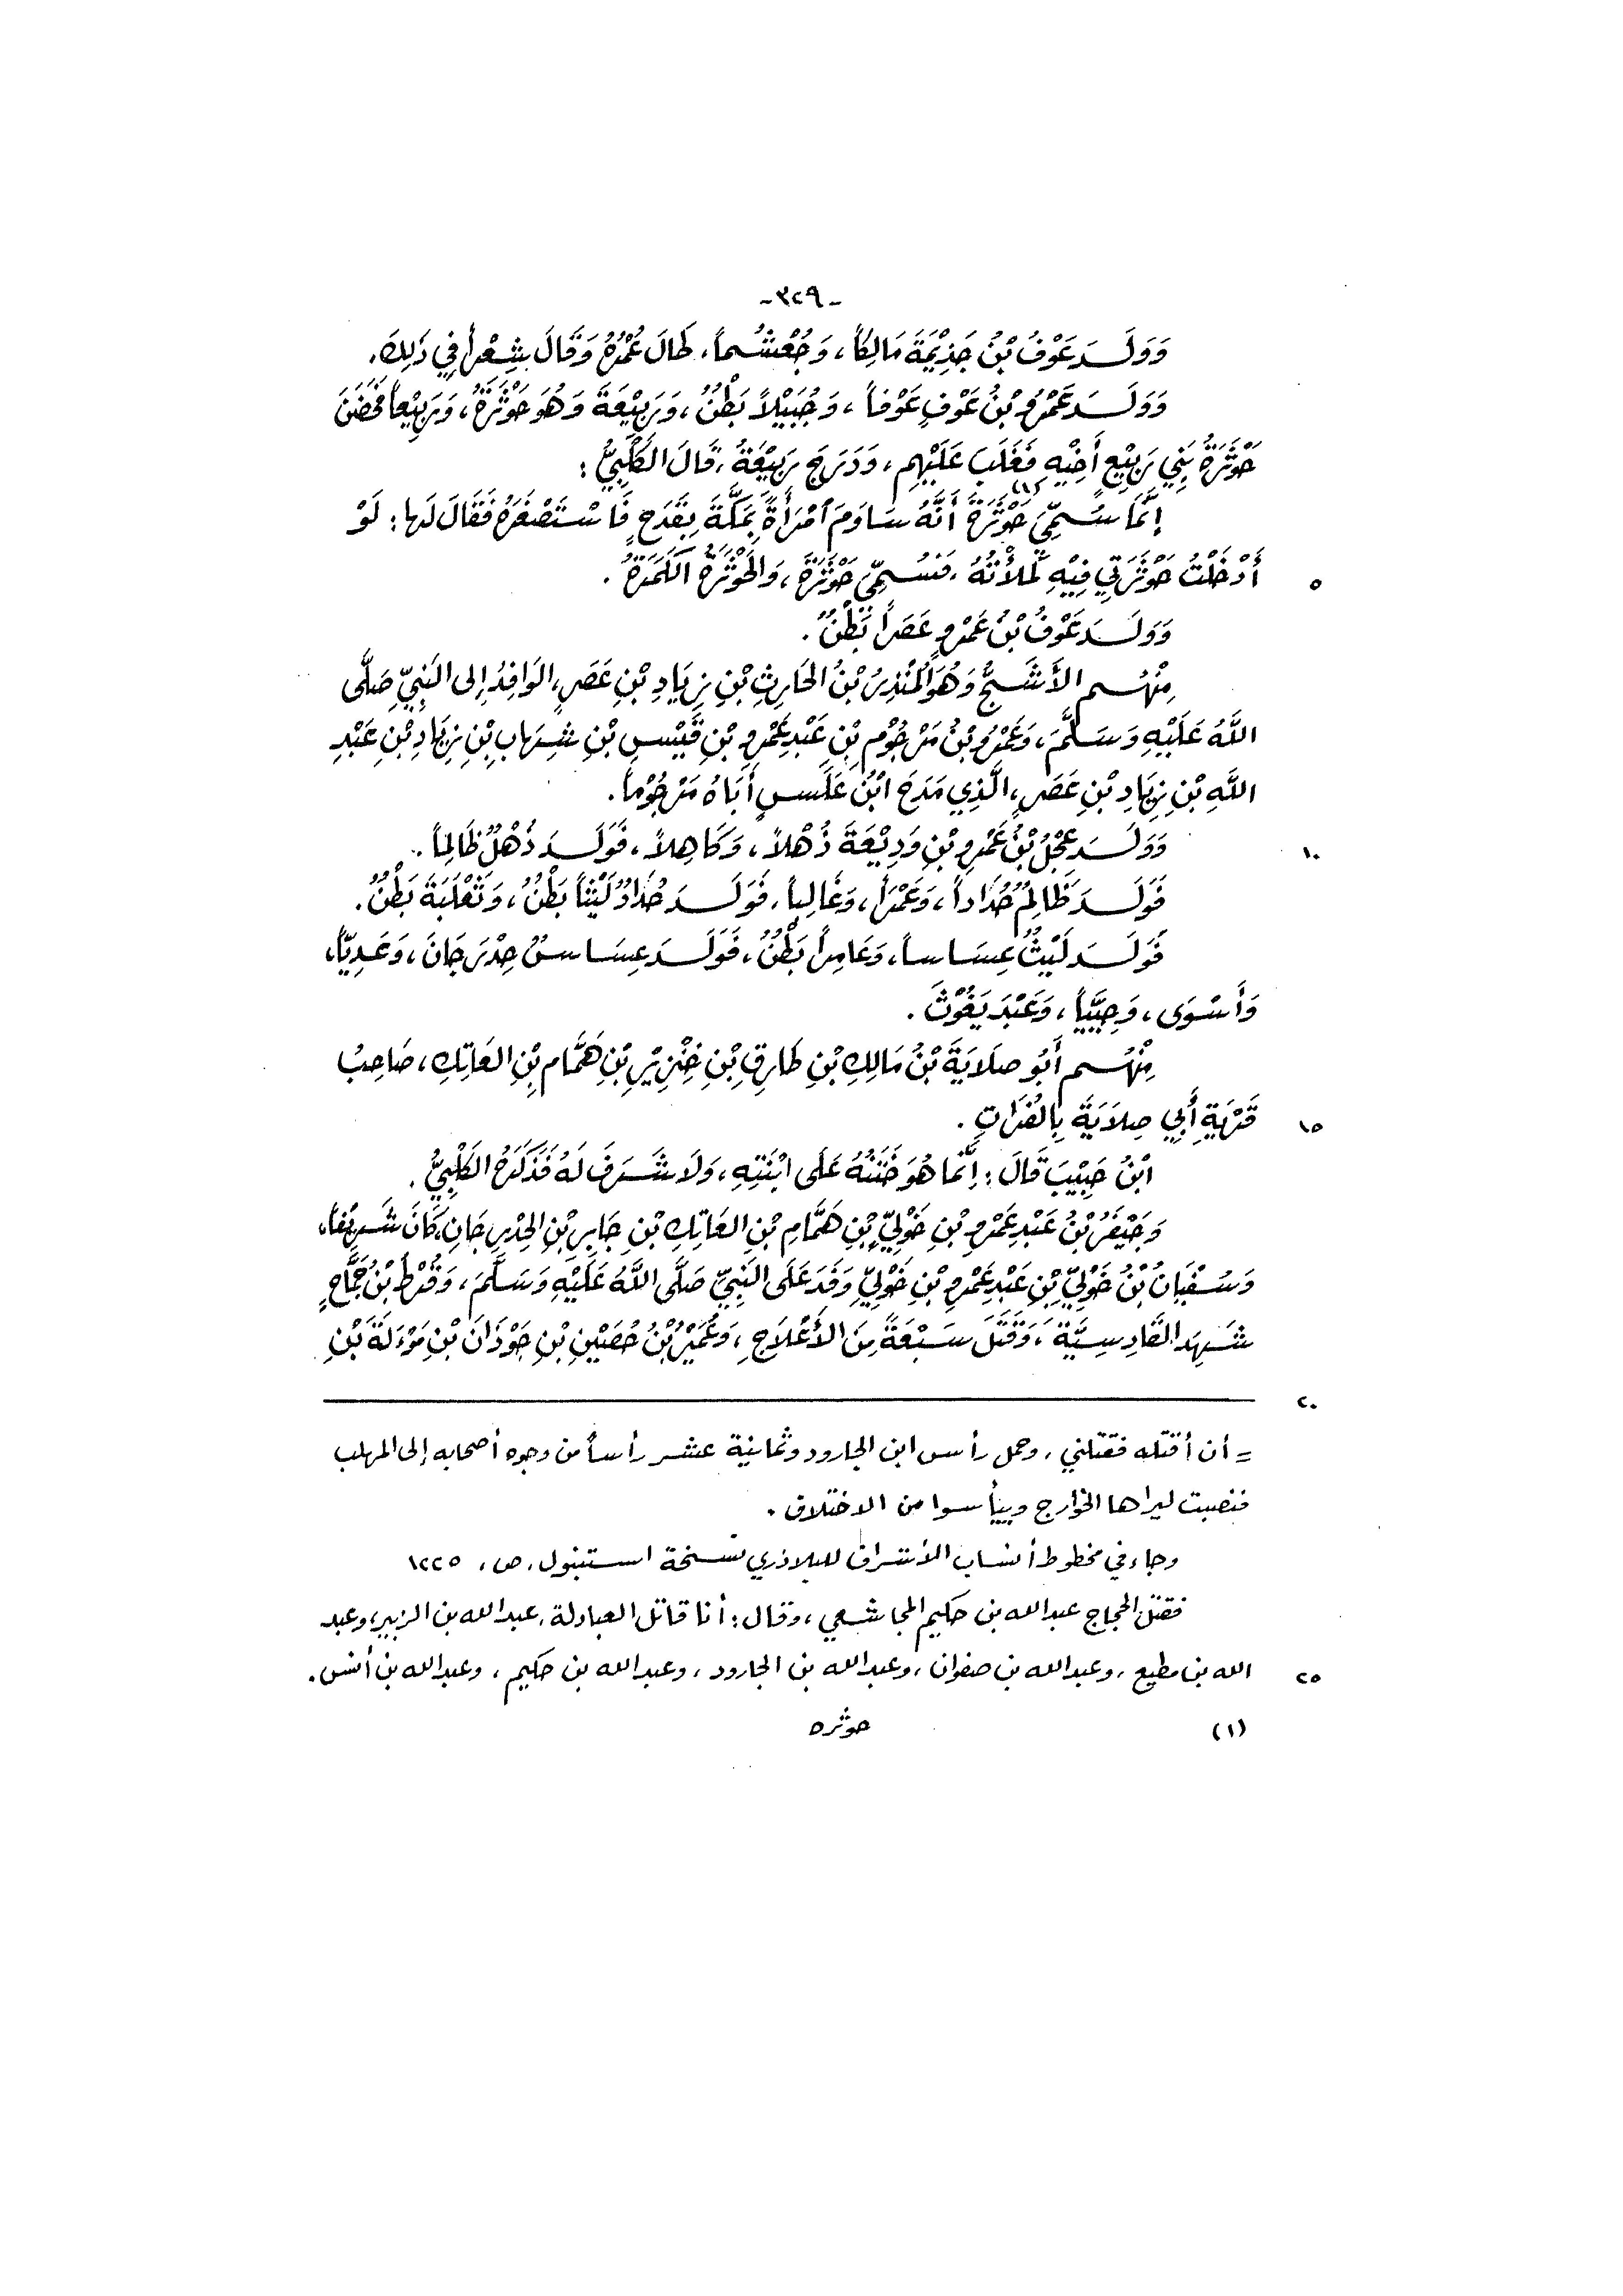 -٣٢٩-
وَوَلَدَ عَوْفُ بْنُ جَذِيْمَةَ مَالِكاً، وَجُعْشُماً، طَالَ عُمْرُهُ وَقَالَ شِعْراً فِي ذَلِكَ.
وَوَلَدَ عَمْرُو بْنُ عَوْفٍ عَوْفاً، وَجُبَيْلاً بَطْنٌ، وَرَبِيْعَةَ وَهُوَ حَوْثَرَةُ، وَرَبِيْعاً فَحَضَنَ
حَوْثَرَةُ بَنِي رَبِيْعٍ أَخِيْهِ فَغَلَبَ عَلَيْهِم، وَدَرَجَ رَبِيْعَةُ، قَالَ الكَلْبِيُّ:
إِنَّمَا سُمِّيَ حَوْثَرَةَ (١) أَنَّهُ سَاوَمَ امْرَأَةً بِمَكَّةَ بِقَدَحٍ فَاسْتَصْغَرَهُ فَقَالَ لَهَا: لَوْ
أَدْخَلْتُ حَوْثَرَتِي فِيْهِ لَمَلأْتُهُ، فَسُمِّيَ حَوْثَرَةَ، وَالحَوْثَرَةُ الكَمَرَةُ. ٥
وَوَلَدَ عَوْفُ بْنُ عَمْرٍو عَصَراً بَطْنٌ.
مِنْهُم الأَشَجُّ وَهُوَ المُنْذِرُ بْنُ الحَارِثِ بْنِ زِيَادِ بْنِ عَصَرٍ، الوَافِدُ إِلى النَبِيِّ صَلَّى
اللَّهُ عَلَيْهِ وَسَلَّمَ، وَعَمْرُو بْنُ مَرْجُوْمِ بْنِ عَبْدِ عَمْرِو بْنِ قَيْسِ بْنِ شِهَابِ بْنِ زِيَادِ بْنِ عَبْدِ
اللَّهِ بْنِ زِيَادِ بْنِ عَصَرٍ، الَّذِي مَدَحَ ابْنُ عَلَسٍ أَبَاهُ مَرْجُوْماً.
وَوَلَدَ عِجْلُ بْنُ عَمْرِو بْنِ وَدِيْعَةَ ذُهْلاً، وَكَاهِلاً، فَوَلَدَ ذُهْلٌ ظَالِماً. ١٠
فَوَلَدَ ظَالِمٌ حُدَاداً، وَعَمْراً، وَغَالِباً، فَوَلَدَ حُدَادٌ لَيْثاً بَطْنٌ، وَثَعْلَبَةَ بَطْنٌ.
فَوَلَدَ لَيْثٌ عِسَاساً، وَعَامِراً بَطْنٌ، فَوَلَدَ عِسَاسٌ حِدْرَجَانَ، وَعَدِيّاً،
وَأَسْوَى، وَحِيَيّاً، وَعَبْدَ يَغُوْثَ.
مِنْهُم أَبُو صلَايَةَ بْنُ مَالِكِ بْنِ طَارِقِ بْنِ خِنْزِيْرِ بْنِ هَمَّامِ بْنِ العَاتِكِ، صَاحِبُ
قَرْيَةِ أَبِي صِلَايَةَ بِالفُرَاتِ. ١٥
ابْنُ حَبِيْبَ قَالَ: إِنَّمَا هُوَ خَتَنُهُ عَلَى ابْنَتِهِ، وَلَا شَرَفَ لَهُ فَذَكَرَهُ الكَلْبِيُّ.
وَجَيْفَرُ بْنُ عَبْدِ عَمْرِو بْنِ خَوْلِيِّ بْنِ هَمَّامِ بْنِ العَاتِكِ بْنِ جَابِرِ بْنِ الحِدْرِجَانِ، كَانَ شَرِيْفاً،
وَسُفْيَانُ بْنُ خَوْلِيِّ بْنِ عَبْدِ عَمْرِو بْنِ خَوْلِيِّ وَفَدَ عَلَى النَبِيِّ صَلَّى اللَّهُ عَلَيْهِ وَسَلَّمَ، وَقُرْطُ بْنُ جَمَّاحٍ
شَهِدَ القَادِسِيَّةَ، وَقَتَلَ سَبْعَةً مِنَ الأَعْلَاجِ، وَعُمَيْرُ بْنُ حُصَيْنِ بْنِ جَوْذَانَ بْنِ مَوْءَلَةَ بْنِ
٢٠
= أن أقتله فقتلني، وحمل رأس ابن الجارود وثمانية عشر رأساً من وجوه أصحابه إلى المهلب
فنصبت ليراها الخوارج وييأسوا من الاختلاف.
وجاء في مخطوط أنساب الأشراف للبلاذري نسخة استنبول، ص، ١٢٢٥
فقتل الحجاج عبدالله بن حكيم المجاشعي، وقال: أنا قاتل العبادلة، عبدالله بن الزبير، وعبد
الله بن مطيع، وعبدالله بن صفوان، وعبدالله بن الجارود، وعبدالله بن حكيم، وعبدالله بن أنس. ٢٥
(١) حوثره